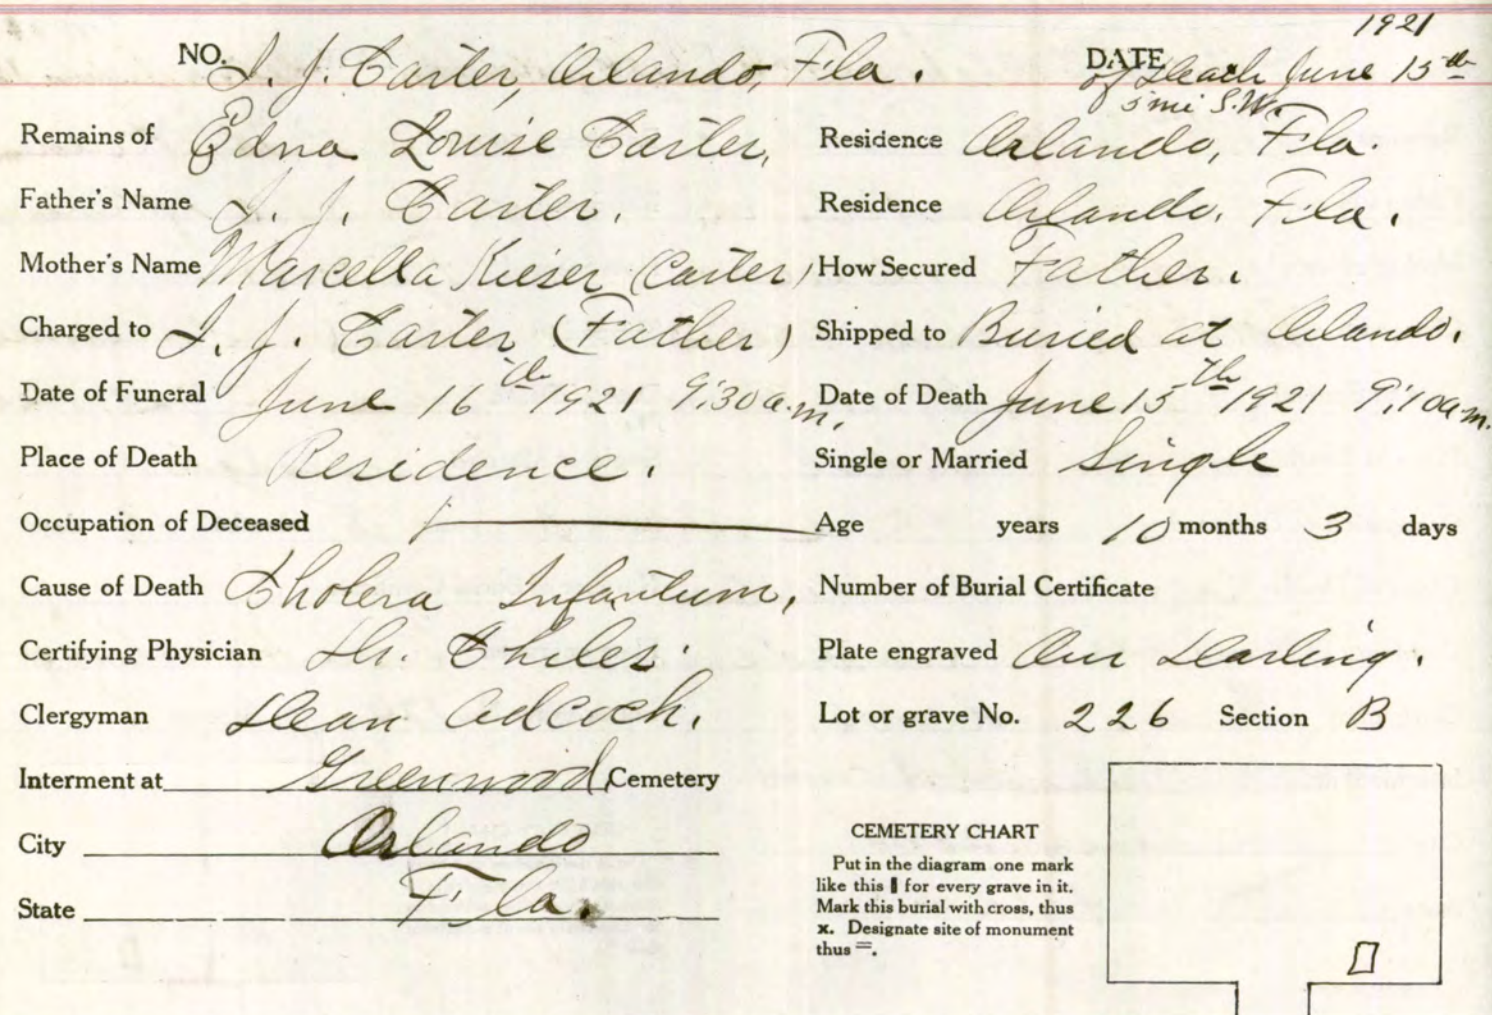 1921
NO. I. J. Carter, Orlando, Fla. DATE of Death June 15th
5 mi S.W.
Remains of Edna Louise Carter, Residence Orlando, Fla.
Father's Name I. J. Carter. Residence Orlando, Fla.
Mother's Name Marcella Kieser (Carter) How Secured Father.
Charged to I. J. Carter (Father) Shipped to Buried at Orlando.
Date of Funeral June 16th 1921 9:30 a.m. Date of Death June 15th 1921 9:10 a.m.
Place of Death Residence. Single or Married Single
Occupation of Deceased Age years 10 months 3 days
Cause of Death Cholera Infantum, Number of Burial Certificate
Certifying Physician Dr. Chiles. Plate engraved Our Darling.
Clergyman Dean Adcock. Lot or grave No. 226 Section B
Interment at Greenwood Cemetery
City Orlando
State Fla.
CEMETERY CHART
Put in the diagram one mark
like this ▮ for every grave in it.
Mark this burial with cross, thus
x. Designate site of monument
thus =.